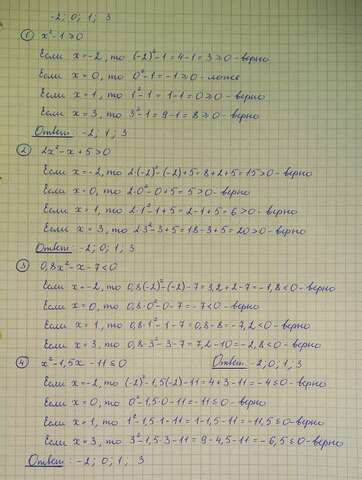 -2; 0; 1; 3
① x²-1≥0
Если x=-2, то (-2)²-1=4-1=3≥0 - верно
Если x=0, то 0²-1=-1≥0 - ложь
Если x=1, то 1²-1=1-1=0≥0 - верно
Если x=3, то 3²-1=9-1=8≥0 - верно
Ответ: -2; 1; 3
② 2x²-x+5>0
Если x=-2, то 2·(-2)²-(-2)+5=8+2+5=15>0 - верно
Если x=0, то 2·0²-0+5=5>0 - верно
Если x=1, то 2·1²-1+5=2-1+5=6>0 - верно
Если x=3, то 2·3²-3+5=18-3+5=20>0 - верно
Ответ: -2; 0; 1; 3
③ 0,8x²-x-7<0
Если x=-2, то 0,8·(-2)²-(-2)-7=3,2+2-7=-1,8<0 - верно
Если x=0, то 0,8·0²-0-7=-7<0 - верно
Если x=1, то 0,8·1²-1-7=0,8-8=-7,2<0 - верно
Если x=3, то 0,8·3²-3-7=7,2-10=-2,8<0 - верно
④ x²-1,5x-11≤0 Ответ: -2; 0; 1; 3
Если x=-2, то (-2)²-1,5(-2)-11=4+3-11=-4≤0 - верно
Если x=0, то 0²-1,5·0-11=-11≤0 - верно
Если x=1, то 1²-1,5·1-11=1-1,5-11=-11,5≤0 - верно
Если x=3, то 3²-1,5·3-11=9-4,5-11=-6,5≤0 - верно
Ответ: -2; 0; 1; 3